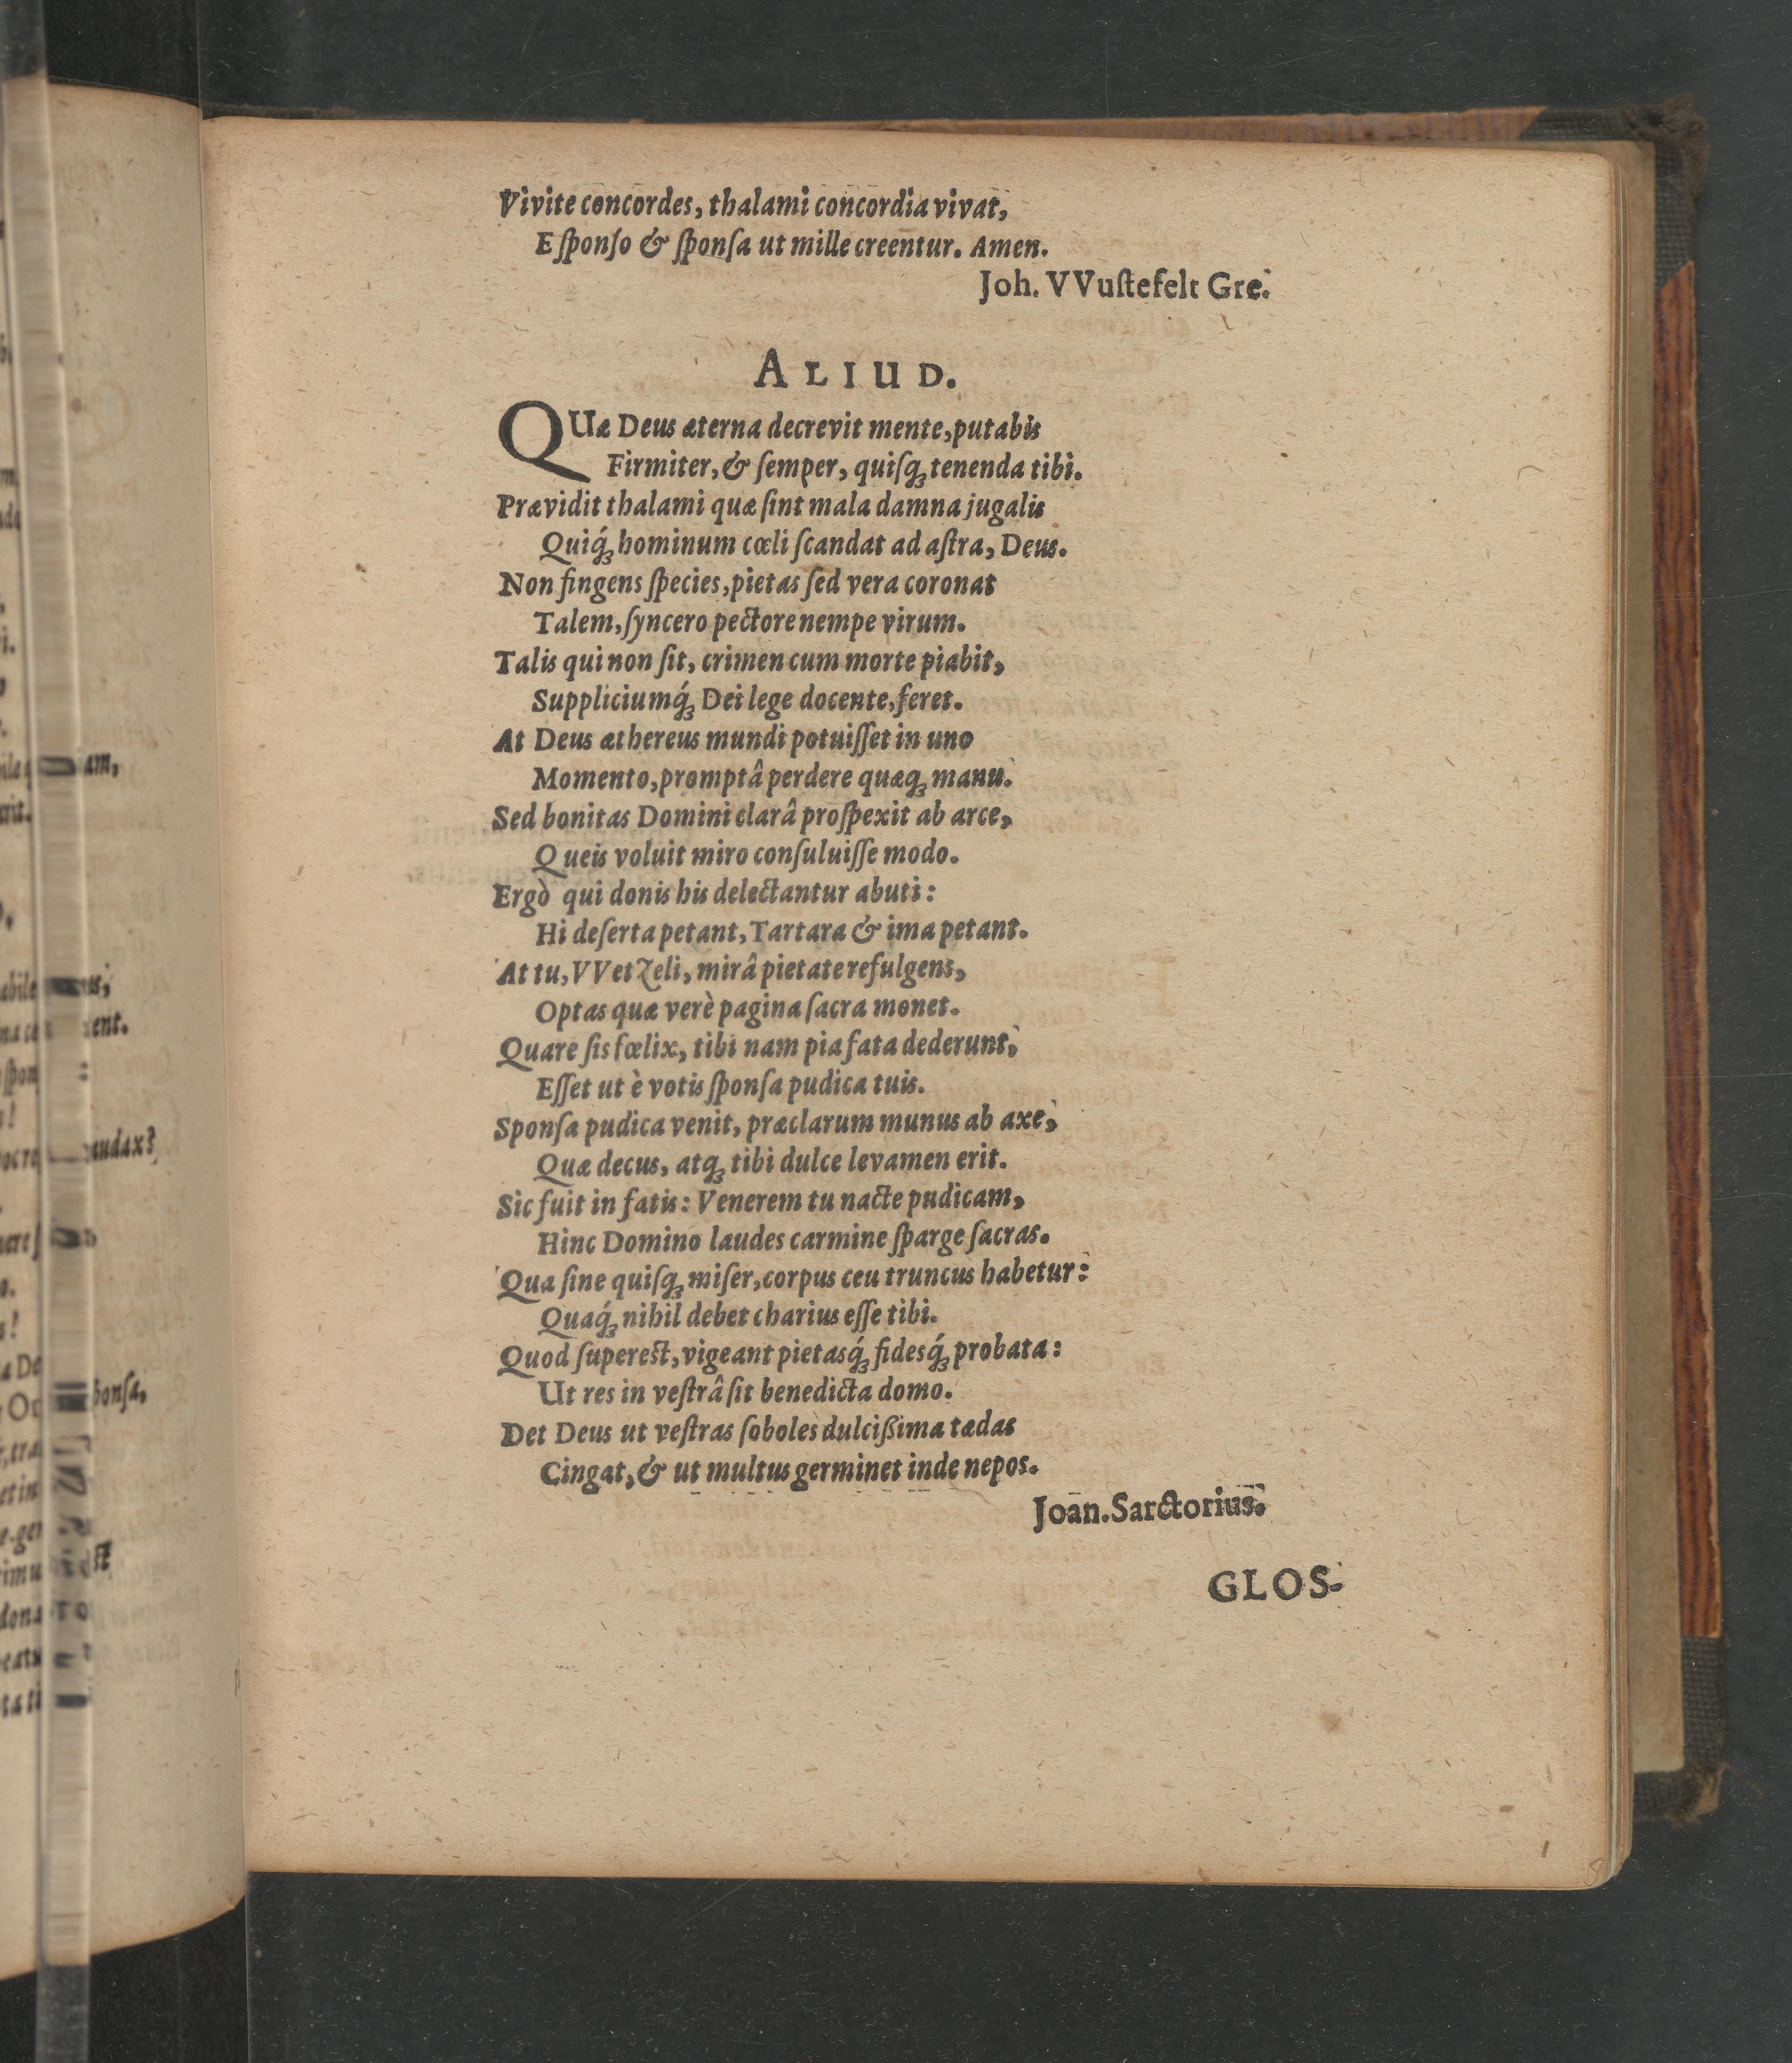 Vivite concordes, thalami concordia vivat,
E ſponſo & ſponſa ut mille creentur. Amen.
Joh. VVuſtefelt Gre.
ALIUD.
QUæ Deus æterna decrevit mente, putabis
Firmiter, & ſemper, quiſq́; tenenda tibi.
Prævidit thalami quæ ſint mala damna jugalis
Quiq́; hominum cœli ſcandat ad aſtra, Deus.
Non fingens ſpecies, pietas ſed vera coronat
Talem, ſyncero pectore nempe virum.
Talis qui non ſit, crimen cum morte piabit,
Suppliciumq́; Dei lege docente, feret.
At Deus æthereus mundi potuiſſet in uno
Momento, promptâ perdere quæq; manu.
Sed bonitas Domini clarâ proſpexit ab arce,
Queis voluit miro conſuluiſſe modo.
Ergò qui donis his delectantur abuti:
Hi deſerta petant, Tartara & ima petant.
At tu, VVetzeli, mirâ pietate refulgens,
Optas quæ verè pagina ſacra monet.
Quare ſis fœlix, tibi nam pia fata dederunt,
Eſſet ut è votis ſponſa pudica tuis.
Sponſa pudica venit, præclarum munus ab axe,
Quæ decus, atq; tibi dulce levamen erit.
Sic fuit in fatis: Venerem tu nacte pudicam,
Hinc Domino laudes carmine ſparge ſacras.
Qua ſine quiſq; miſer, corpus ceu truncus habetur:
Quaq́; nihil debet charius eſſe tibi.
Quod ſupereſt, vigeant pietasq́; fidesq́; probata:
Ut res in veſtrâ ſit benedicta domo.
Det Deus ut veſtras ſoboles dulcißima tædas
Cingat, & ut multus germinet inde nepos.
Joan. Sarctorius.
GLOS-